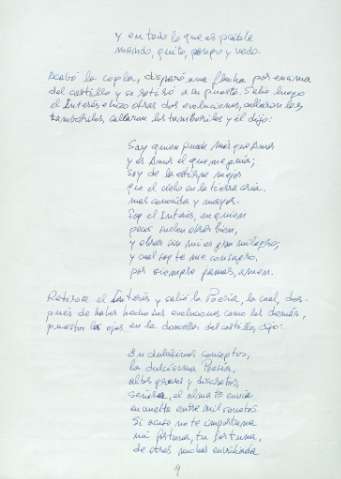 y en todo lo que es posible
mando, quito, pongo y vedo.
Acabó la copla, disparó una flecha por encima
del castillo y se retiró a su puesto. Salió luego
el Interés e hizo otras dos evoluciones, callaron los
tamboriles, callaron los tamboriles y él dijo:
Soy quien puede más que Amor
y es Amor el que me guía;
soy de la estirpe mejor
que el cielo en la tierra cría
mas conocida y mayor.
Soy el Interés, en quien
pocos suelen obrar bien,
y obrar sin mí es gran milagro;
y cual soy te me consagro,
por siempre jamás, amén.
Retirose el Interés y salió la Poesía, la cual, des-
pués de haber hecho sus evoluciones como los demás,
puestos los ojos en la doncella del castillo, dijo:
En dulcísimos conceptos,
la dulcísima Poesía,
altos, graves y discretos,
señora, el alma te envía
envuelta entre mil sonetos.
Si acaso no te importuna
mi porfía, tu fortuna,
de otras muchas envidiada
9